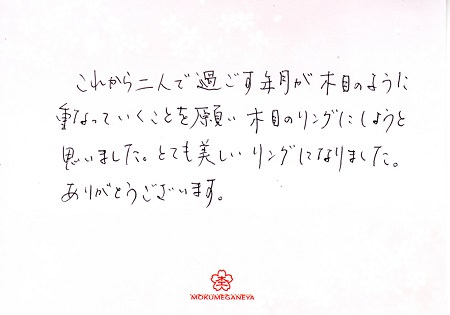 これから二人で過ごす年月が木目のように
重なっていくことを願い木目のリングにしようと
思いました。とても美しいリングになりました。
ありがとうございます。
杢
MOKUMEGANEYA